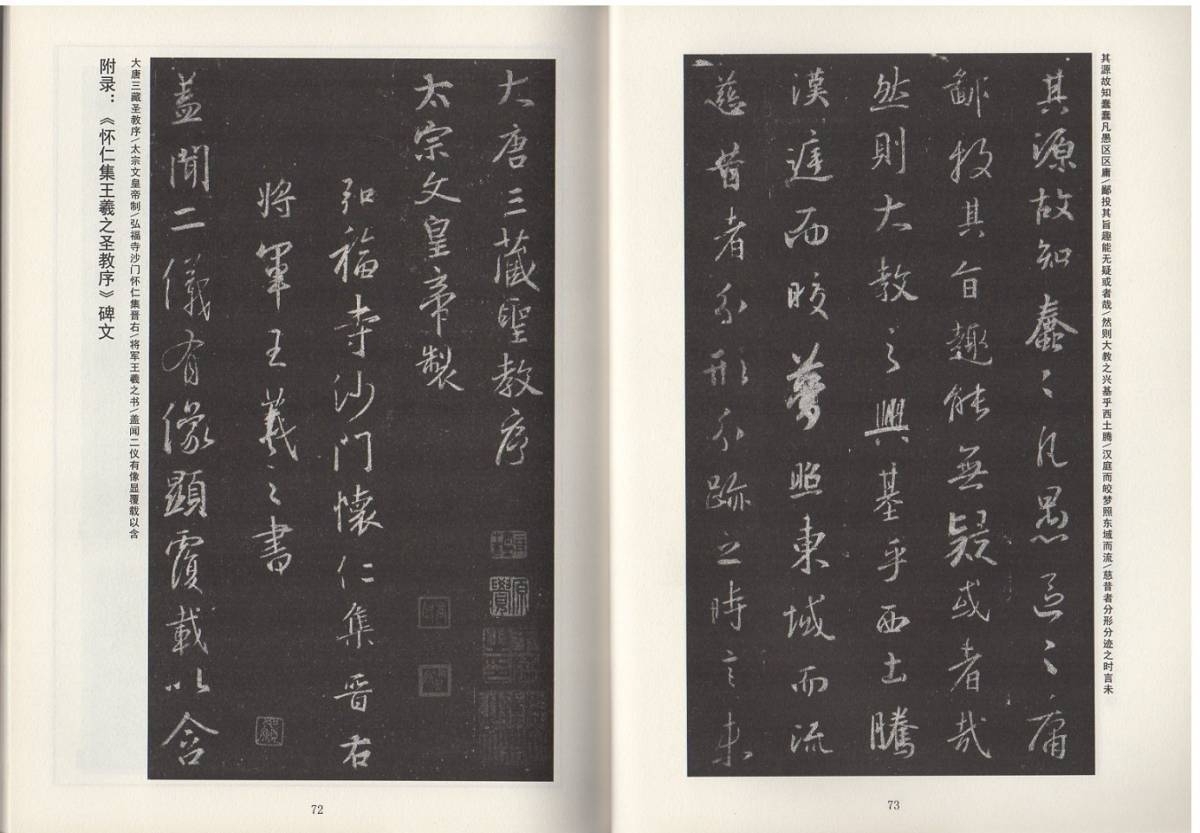 附录：《怀仁集王羲之圣教序》碑文
大唐三藏圣教序/太宗文皇帝制/弘福寺沙门怀仁集晋右/将军王羲之书/盖闻二仪有像显覆载以含
大唐三藏聖教序
太宗文皇帝製
弘福寺沙门懷仁集晉右
将軍王羲之書
盖聞二儀有像顯覆載以含
72
其源故知蠢蠢凡愚区区庸/鄙投其旨趣能无疑或者哉/然则大教之兴基乎西土腾/汉庭而皎梦照东域而流/慈昔者分形分迹之时言未
其源故知蠢〻凡愚區〻庸
鄙投其旨趣能無疑或者哉
然則大教之興基乎西土騰
漢庭而皎夢照東域而流
慈昔者分形分跡之時言未
73